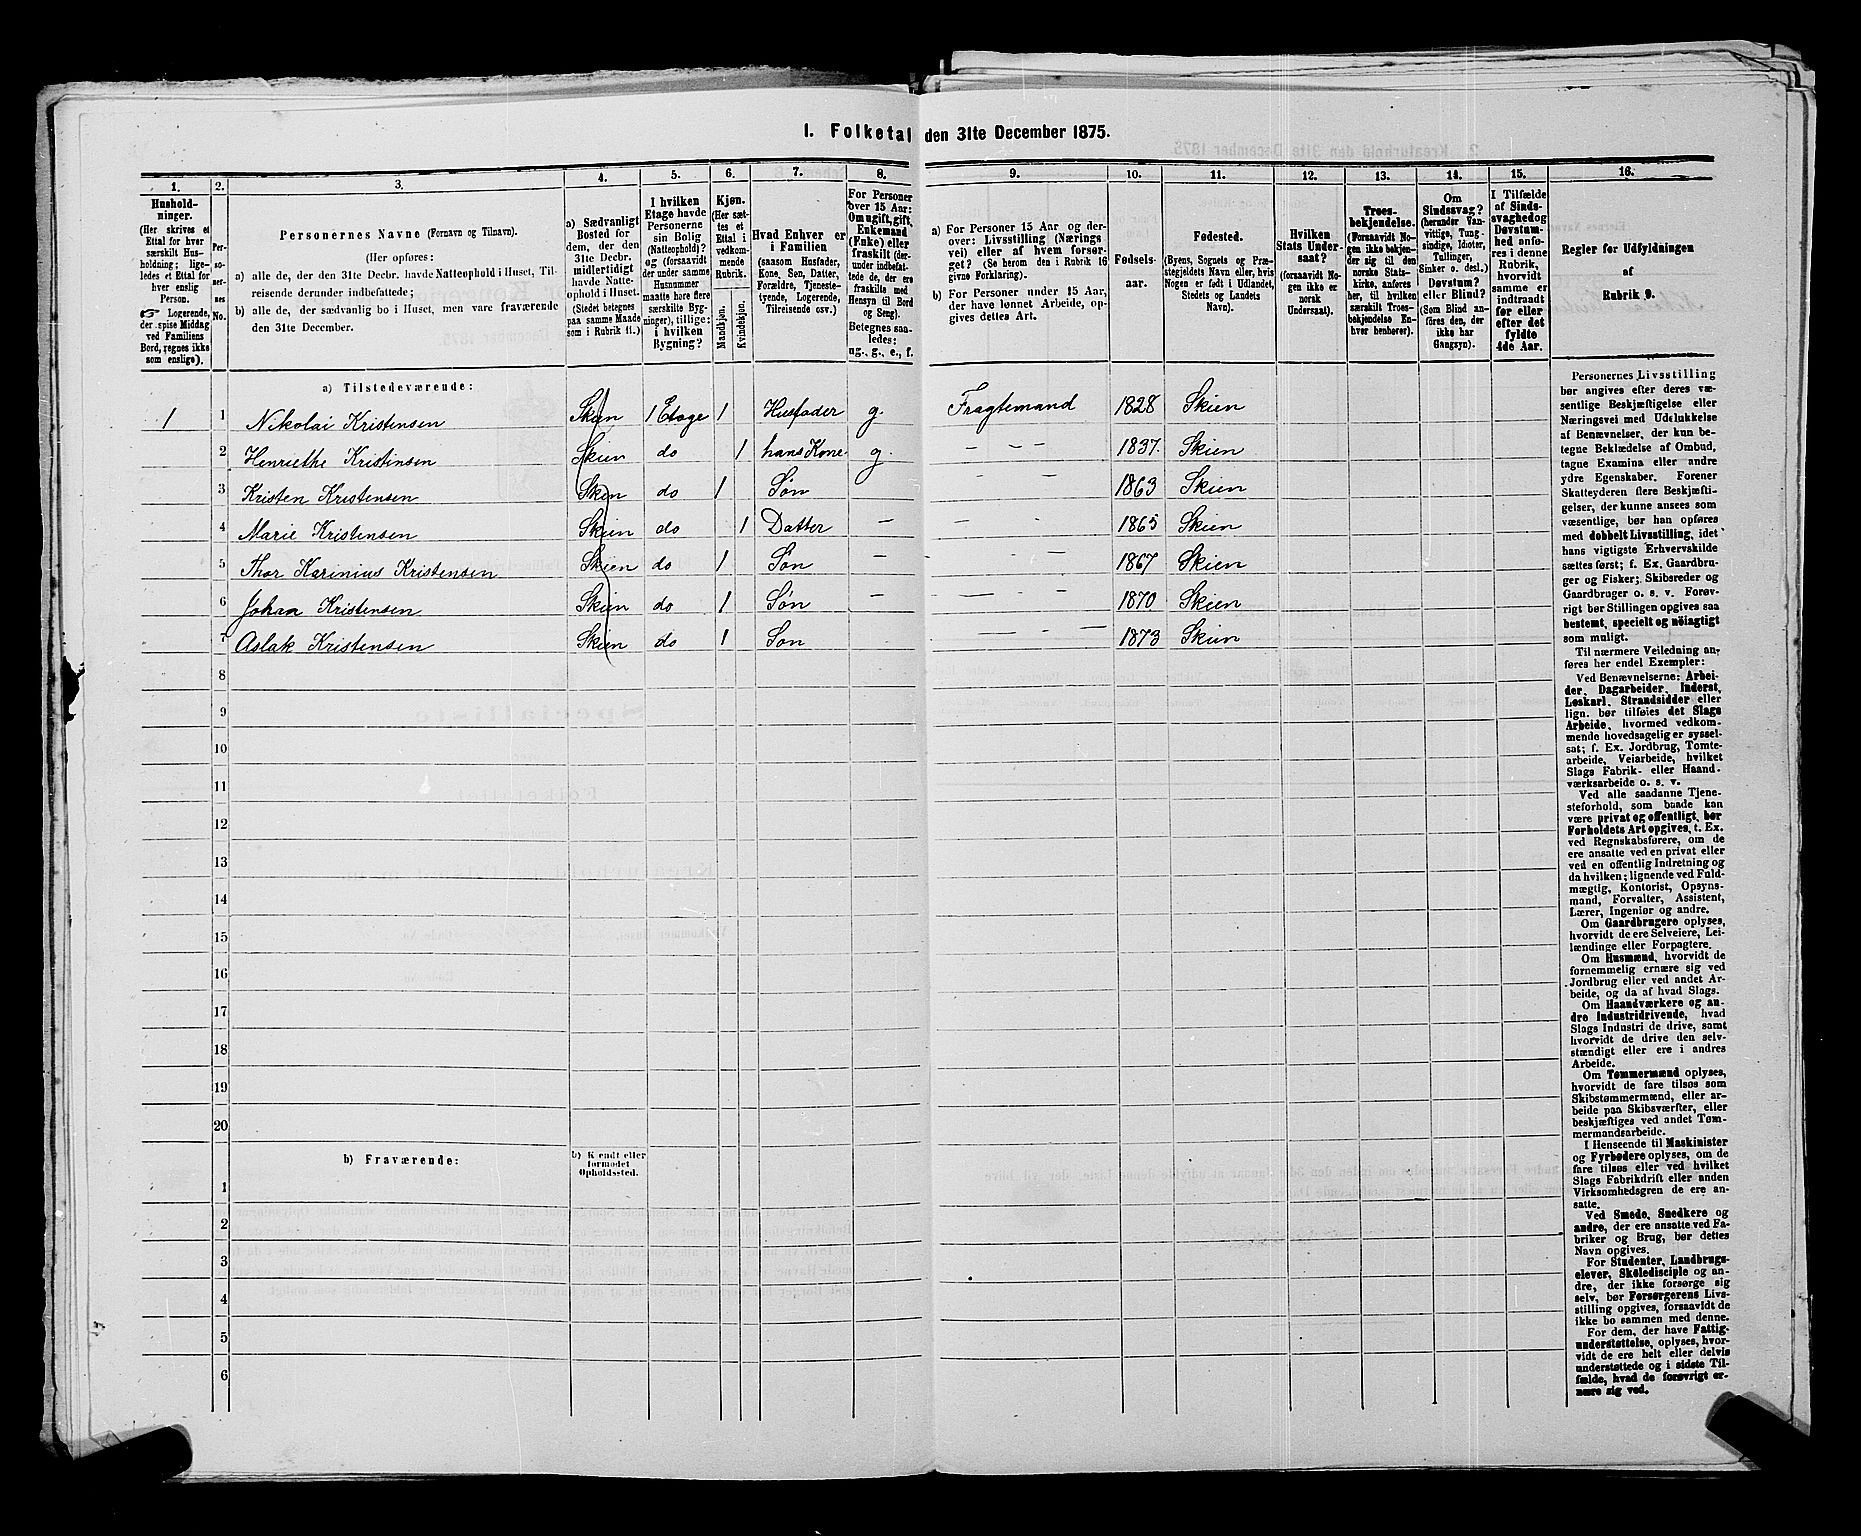 I. Folketal den 31te December 1875.
1. 2. 3. 4. 5. 6. 7. 8. 9. 10. 11. 12. 13. 14. 15. 16.
Hushold-
ninger.
(Her skrives et
Ettal for hver
særskilt Hus-
holdning; lige-
ledes et Ettal for
hver enslig
Person.
☞ Logerende,
der spise Middag
ved Familiens
Bord, regnes ikke
som enslige).
Per-
so-
ner-
nes
No.
Personernes Navne (Fornavn og Tilnavn).
(Her opføres:
a) alle de, der den 31te Decbr. havde Natteophold i Huset, Til-
reisende derunder indbefattede;
b) alle de, der sædvanlig bo i Huset, men vare fraværende
den 31te December.
a) Sædvanligt
Bosted for
dem, der den
31te Decbr.
midlertidigt
havde Natte-
ophold i Huset.
(Stedet betegnes
paa samme Maade
som i Rubrik 11.)
I hvilken
Etage havde
Personerne
sin Bolig
(Natteophold)?
og (forsaavidt
der under samme
Husnummer
maatte høre flere
særskilte Byg-
ninger), tillige:
i hvilken
Bygning?
Kjøn.
(Her sæt-
tes et
Ettal i
vedkom-
mende
Rubrik.
Mandkjøn.
Kvindekjøn.
Hvad Enhver er
i Familien
(saasom Husfader,
Kone, Søn, Datter,
Forældre, Tjeneste-
tyende, Logerende,
Tilreisende osv.)
For Personer
over 15 Aar:
Om ugift, gift,
Enkemand
(Enke) eller
fraskilt (der-
under indbefat-
tede de, der ere
fraskilte med
Hensyn til Bord
og Seng).
Betegnes saa-
ledes:
ug., g., e., f.
a) For Personer 15 Aar og der-
over: Livsstilling (Nærings
vei) eller af hvem forsør-
get? (Se herom den i Rubrik 16
givne Forklaring).
b) For Personer under 15 Aar,
der have lønnet Arbeide, op-
gives dettes Art.
Fødsels-
aar.
Fødested.
(Byens, Sognets og Præ-
stegjeldets Navn eller, hvis
Nogen er født i Udlandet,
Stedets og Landets
Navn).
Hvilken
Stats Under-
saat?
(forsaavidt No-
gen ikke er
norsk
Undersaat).
Troes-
bekjendelse.
(Forsaavidt No-
gen ikke bekjen-
der sig til den
norske Stats-
kirke, anføres
her, til hvilken
særskilt Troes-
bekjendelse En-
hver henhører).
Om
Sindssvag?
(herunder Van-
vittige, Tung-
sindige, Idioter,
Tullinger,
Sinker o. desl.)
Døvstum?
eller Blind?
(Som Blind an-
føres den, der
ikke har
Gangsyn).
I Tilfælde
af Sinds-
svaghed og
Døvstum-
hed anfø-
res i denne
Rubrik,
hvorvidt
samme er
indtraadt
før eller
efter det
fyldte
4de Aar.
Regler for Udfyldningen
af
Rubrik 9.
a) Tilstedeværende:
1 1 Nikolai Kristensen Skien 1 Etage 1 Husfader g. Fragtemand 1828 Skien
2 Henriethe Kristinsen Skien do 1 hans Kone g. — — — 1837. Skien
3 Kristen Kristensen Skien do 1 Søn — — 1863 Skien
4 Marie Kristensen Skien do 1 Datter — — 1865 Skien
5 Thor Karinius Kristensen Skien do 1 Søn — — — 1867 Skien
6 Johan Kristensen Skien do 1 Søn — — — — 1870 Skien
7 Aslak Kristensen Skien do 1 Søn — — — 1873 Skien
8
9
10
11
12
13
14
15
16
17
18
19
20
b) Fraværende:
b) Kjendt eller
formodet
Opholdssted.
1
2
3
4
5
6
Personernes Livsstilling
bør angives efter deres væ-
sentlige Beskjæftigelse eller
Næringsvei med Udelukkelse
af Benævnelser, der kun be-
tegne Beklædelse af Ombud,
tagne Examina eller andre
ydre Egenskaber. Forener
Skatteyderen flere Beskjæfti-
gelser, der kunne ansees som
væsentlige, bør han opføres
med dobbelt Livsstilling, idet
hans vigtigste Erhvervskilde
sættes først; f. Ex. Gaardbru-
ger og Fisker; Skibsreder og
Gaardbruger o. s. v. Forøv-
rigt bør Stillingen opgives saa
bestemt, specielt og nøiagtigt
som muligt.
Til nærmere Veiledning an-
føres her endel Exempler:
Ved Benævnelserne: Arbei-
der, Dagarbeider, Inderst,
Løskarl, Strandsidder eller
lign. bør tilføies det Slags
Arbeide, hvormed vedkom-
mende hovedsagelig er syssel-
sat; f. Ex. Jordbrug, Tomte-
arbeide, Veiarbeide, hvilket
Slags Fabrik- eller Haand-
værksarbeide o. s. v.
Ved alle saadanne Tjene-
steforhold, som baade kan
være privat og offentligt, bør
Forholdets Art opgives, t. Ex.
ved Regnskabsførere, om de
ere ansatte ved en privat eller
ved en offentlig Indretning og
da hvilken; lignende ved Fuld-
mægtig, Kontorist, Opsyns-
mand, Forvalter, Assistent,
Lærer, Ingeniør og andre.
Om Gaardbrugere oplyses,
hvorvidt de ere Selveiere, Lei-
lændinge eller Forpagtere.
Om Husmænd, hvorvidt de
fornemmelig ernære sig ved
Jordbrug eller ved andet Ar-
beide, og da af hvad Slags.
Om Haandværkere og an-
dre Industridrivende, hvad
Slags Industri de drive, samt
hvorvidt de drive den selv-
stændigt eller ere i andres
Arbeide.
Om Tømmermænd oplyses,
hvorvidt de fare tilsøs som
Skibstømmermænd, eller ar-
beide paa Skibsværfter, eller
beskjæftiges ved andet Tøm-
mermandsarbeide.
I Henseende til Maskinister
og Fyrbødere oplyses, om de
fare tilsøs eller ved hvilket
Slags Fabrikdrift eller anden
Virksomhedsgren de ere an-
satte.
Ved Smede, Snedkere og
andre, der ere ansatte ved Fa-
briker og Brug, bør dettes
Navn opgives.
For Studenter, Landbrugs-
elever, Skoledisciple og an-
dre, der ikke forsørge sig
selv, bør Forsørgerens Livs-
stilling opgives, forsaavidt de
ikke bo sammen med denne.
For dem, der have Fattig-
understøttelse, oplyses, hvor-
vidt de ere helt eller delvis
understøttede og i sidste Til-
fælde, hvad de forøvrigt er-
nære sig ved.